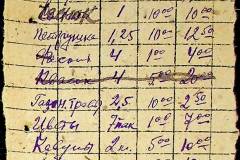 Чеснок 1 10 00 10 00
Петрушка 1,25 10 00 12 50
Фасоль 4 1 00 4 00
4 5 00 20 00
Газон. трава 2,5 10 00 2 50
Цветы 7 пак 1 00 7 00
Кабачки 2 5 00 10 00